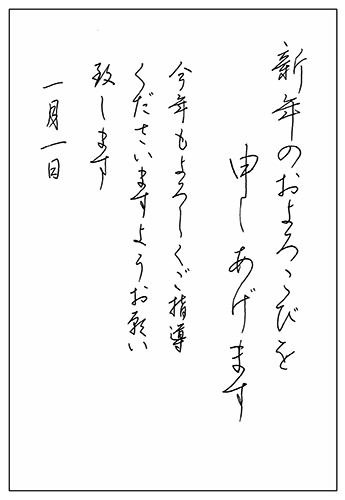 新年のおよろこびを
申しあげます
今年もよろしくご指導
くださいますようお願い
致します
一月一日